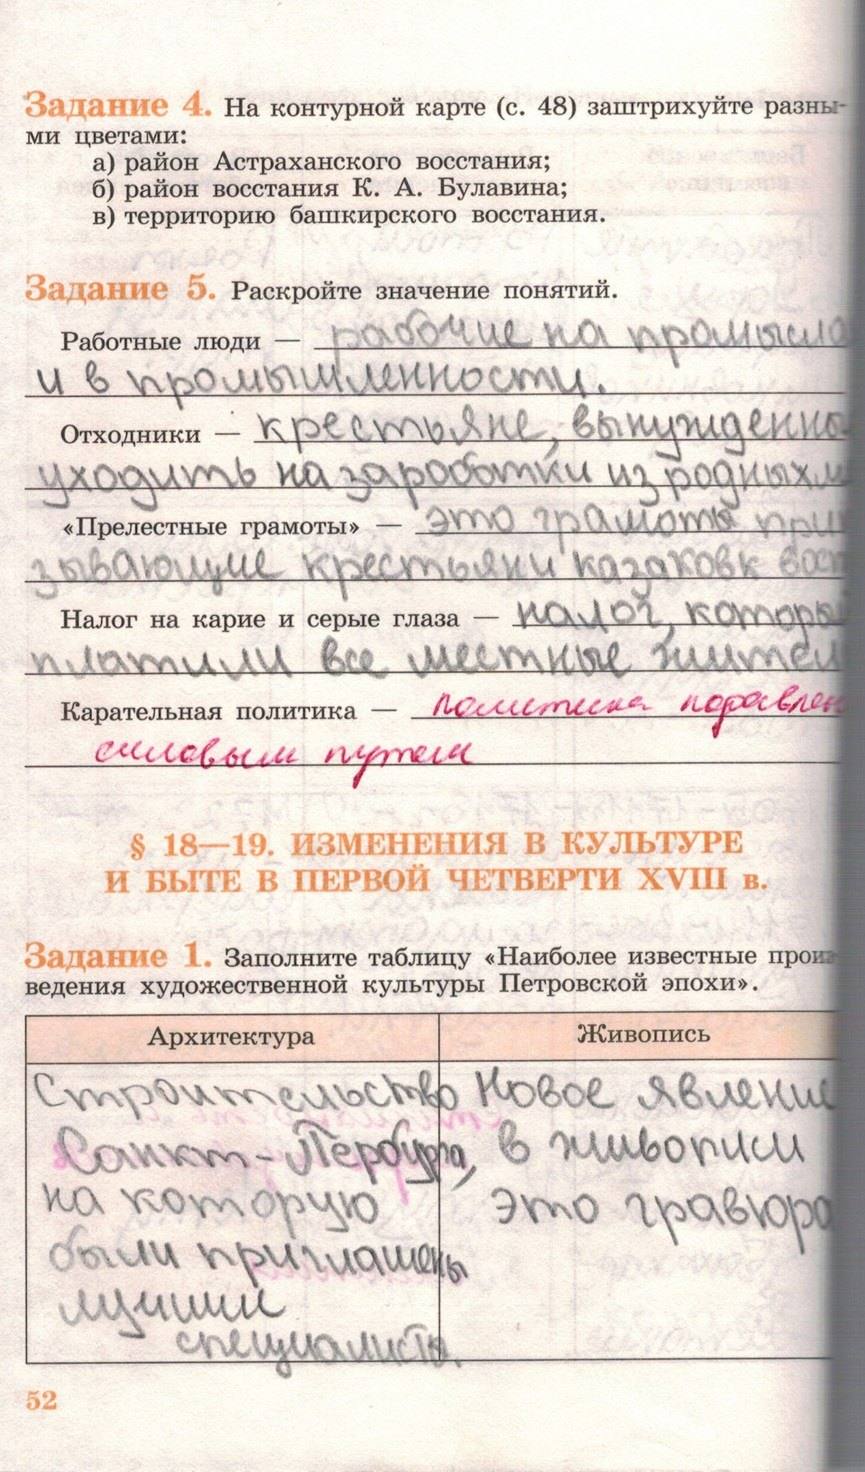 Задание 4. На контурной карте (с. 48) заштрихуйте разны-
ми цветами:
а) район Астраханского восстания;
б) район восстания К. А. Булавина;
в) территорию башкирского восстания.
Задание 5. Раскройте значение понятий.
Работные люди — рабочие на промысла
и в промышленности.
Отходники — крестьяне, вынужденны
уходить на заработки из родных м
«Прелестные грамоты» — это грамоты при
зывающие крестьян и казаков к восст
Налог на карие и серые глаза — налог, который
платили все местные жител
Карательная политика — политика подавлен
силовым путем
§ 18—19. ИЗМЕНЕНИЯ В КУЛЬТУРЕ
И БЫТЕ В ПЕРВОЙ ЧЕТВЕРТИ XVIII в.
Задание 1. Заполните таблицу «Наиболее известные произ-
ведения художественной культуры Петровской эпохи».
Архитектура
Живопись
Строительство
Санкт-Пербурга,
на которую
были приглашены
лучшии
специалисты.
Новое явление
в живописи
это гравюра
52